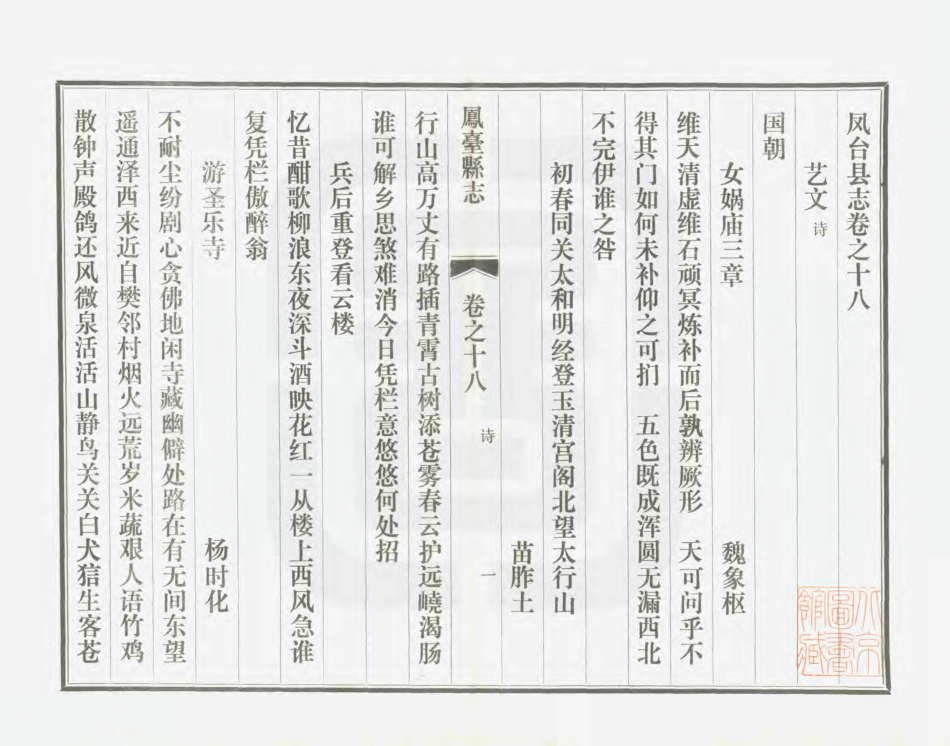 凤台县志卷之十八
艺文 诗
国朝
女娲庙三章 魏象枢
维天清虚维石顽冥炼补而后孰辨厥形 天可问乎不
得其门如何未补仰之可扪 五色既成浑圆无漏西北
不完伊谁之咎
初春同关太和明经登玉清宫阁北望太行山
苗胙土
鳳臺縣志 卷之十八 诗 一
行山高万丈有路插青霄古树添苍雾春云护远峣渴肠
谁可解乡思煞难消今日凭栏意悠悠何处招
兵后重登看云楼
忆昔酣歌柳浪东夜深斗酒映花红一从楼上西风急谁
复凭栏傲醉翁
游圣乐寺 杨时化
不耐尘纷剧心贪佛地闲寺藏幽僻处路在有无间东望
遥通泽西来近自樊邻村烟火远荒岁米蔬艰人语竹鸡
散钟声殿鸽还风微泉活活山静鸟关关白犬狺生客苍
北京
圖書
館藏